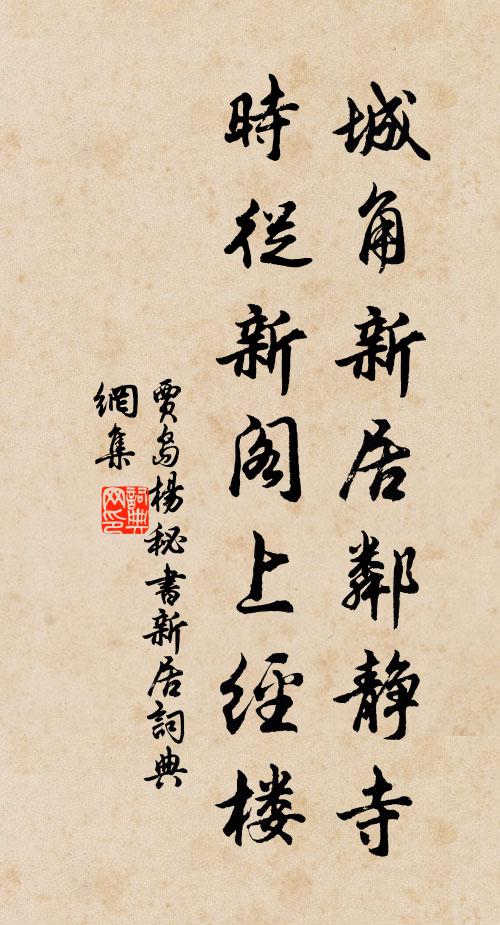 城角新居鄰静寺
時從新阁上經楼
賈岛楊秘書新居詞典
網集
詞典
网印